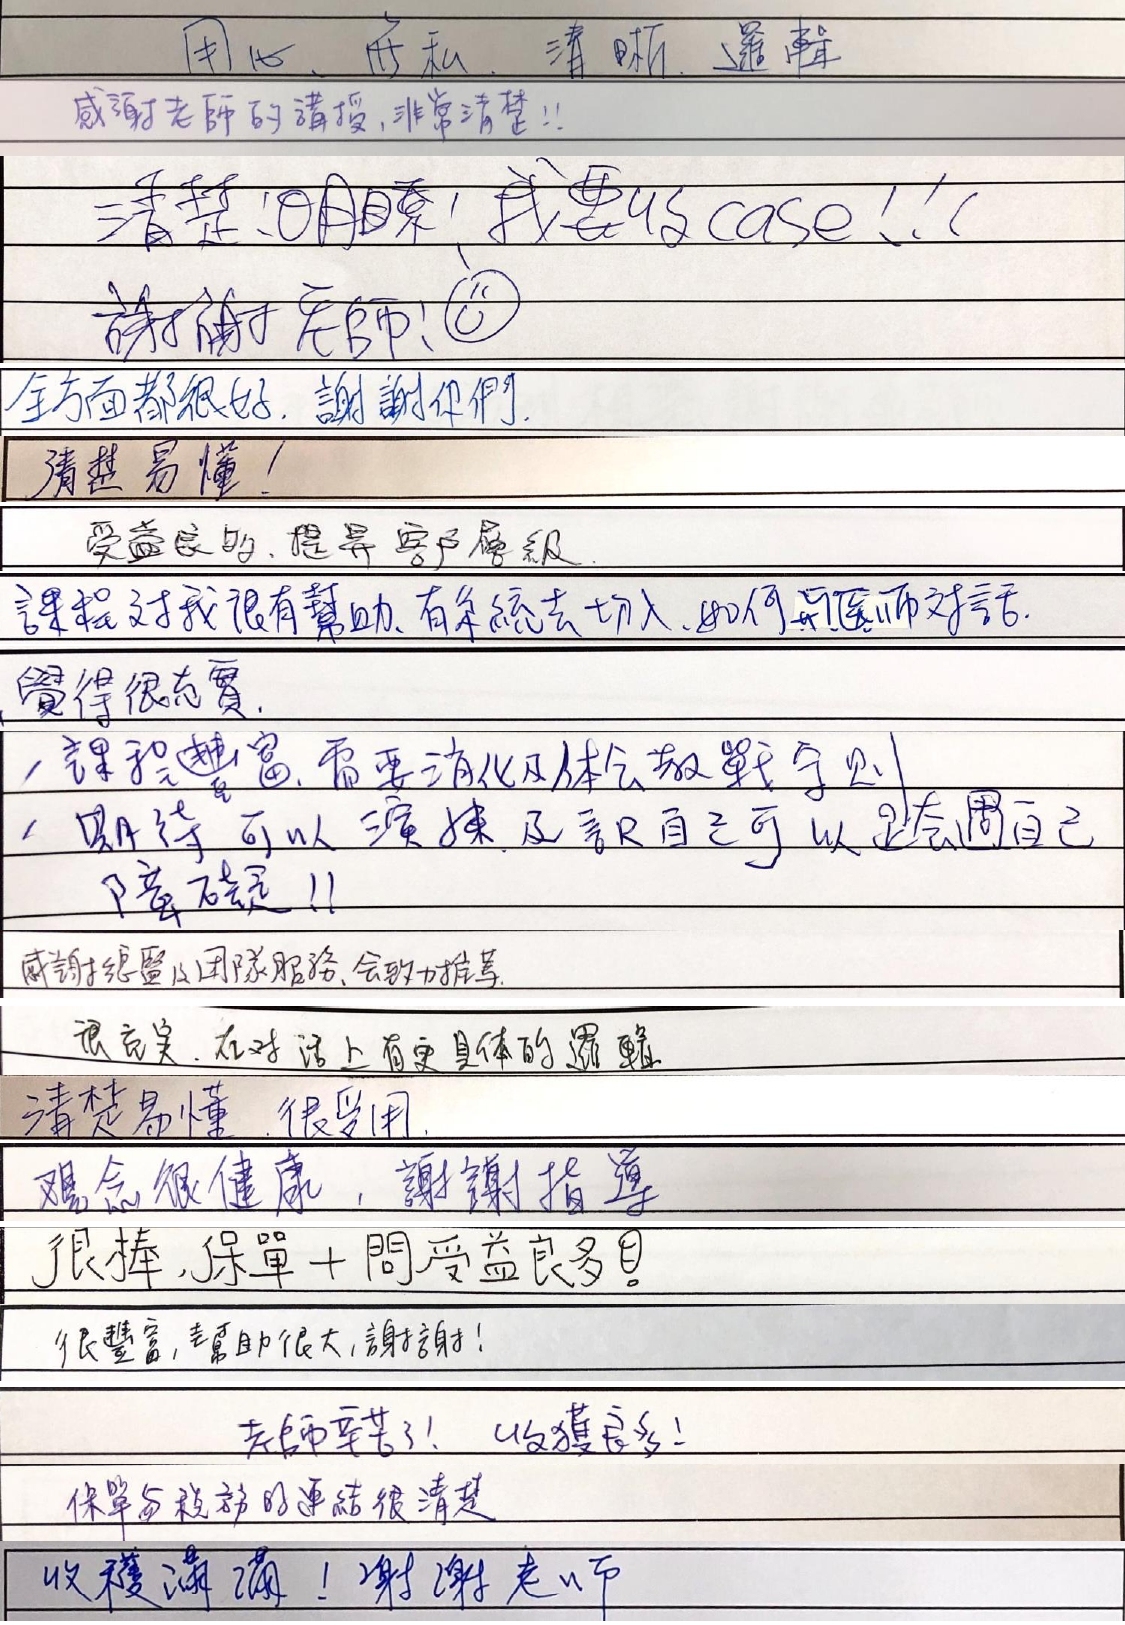 用心、無私、清晰、邏輯
感謝老師的講授,非常清楚!!
清楚明瞭!我要收case!!!
謝謝老師!
全方面都很好.謝謝你們.
清楚易懂!
受益良多,提昇客戶層級.
課程对我很有幫助、有系統去切入、如何與医师对話.
覺得很充實.
課程豐富,需要消化及体会教戰守則
期待可以演練及 自己可以 自己
障礙!!
感謝總監及团隊服務、会致力推荐.
很充実.在对话上有更具体的邏輯
清楚易懂.很受用.
观念很健康,謝謝指導
很捧,保單+問受益良多!
很豐富,幫助很大,謝謝!
老師辛苦了! 收獲良多!
保單与稅務的連結很清楚
收穫滿滿!謝謝老师